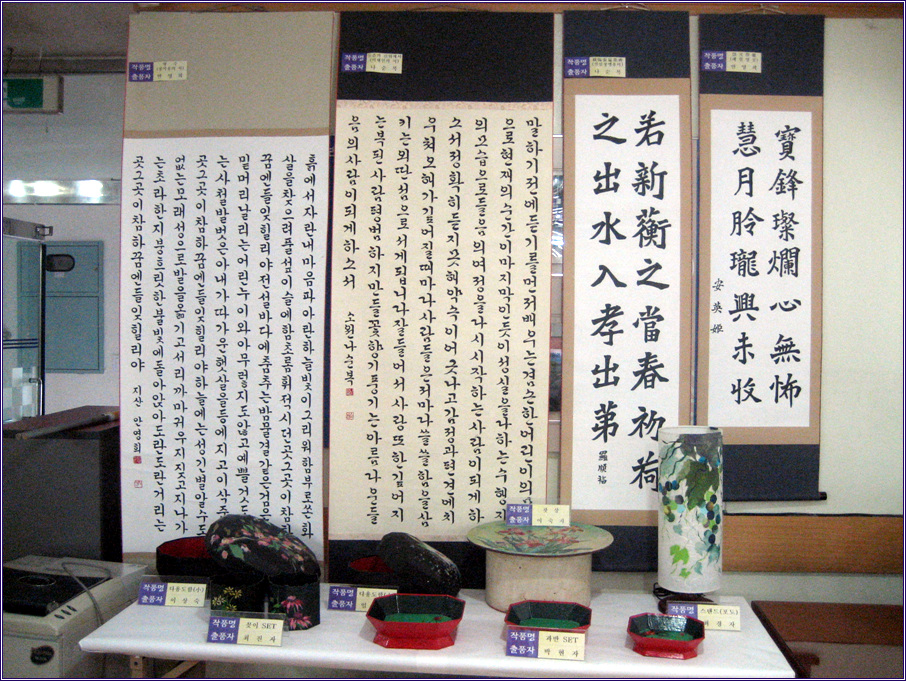 작품명
출품자 안영자
작품명
출품자 나순복
작품명
출품자 나순복
작품명
출품자 안영자
흙에서자란내마음파아란하늘빛이그리워함부로쏜화
살을찾으려풀섶이슬에함초롬휘적시던곳그곳이참하
꿈엔들잊힐리야전설바다에춤추는밤물결같은검은
밑머리날리는어린누이와아무렇지도않고예쁠것도
는사철발벗은아내가따가운햇살을등에지고이삭줍
곳그곳이참하꿈엔들잊힐리야하늘에는성긴별알수도
없는모래성으로발을옮기고서리까마귀우지짖고지나가
는초라한지붕흐릿한불빛에돌아앉아도란도란거리는
곳그곳이참하꿈엔들잊힐리야 지산 안영희
말하기전에듣기를먼저배우는겸손한어린이의마
으로현재의순간이마지막인듯이성실을다하는수행자
의모습으로들음의여정을다시시작하는사람이되게하
소서정확히듣지못해약속이어긋나고감정과편견에치
우쳐오해가깊어질때마다사람들은저마다쓸쓸함을삼
키는외딴섬으로서게됩니다잘들어서사랑또한깊어지
는복된사람평범하지만들꽃향기풍기는아름다운들
음의사람이되게하소서 소원 나순복
若新蘅之當春礿荷
之出水入孝出第 羅順福
寶鋒璨爛心無怖
慧月朎瓏興未收 安英姬
작품명
출품자 이숙자
작품명 다용도함(수)
출품자 이장숙
작품명 다용도함
출품자
작품명 꽃이 SET
출품자 최진자
작품명 과반 SET
출품자 박현자
작품명 스탠드(포도)
출품자